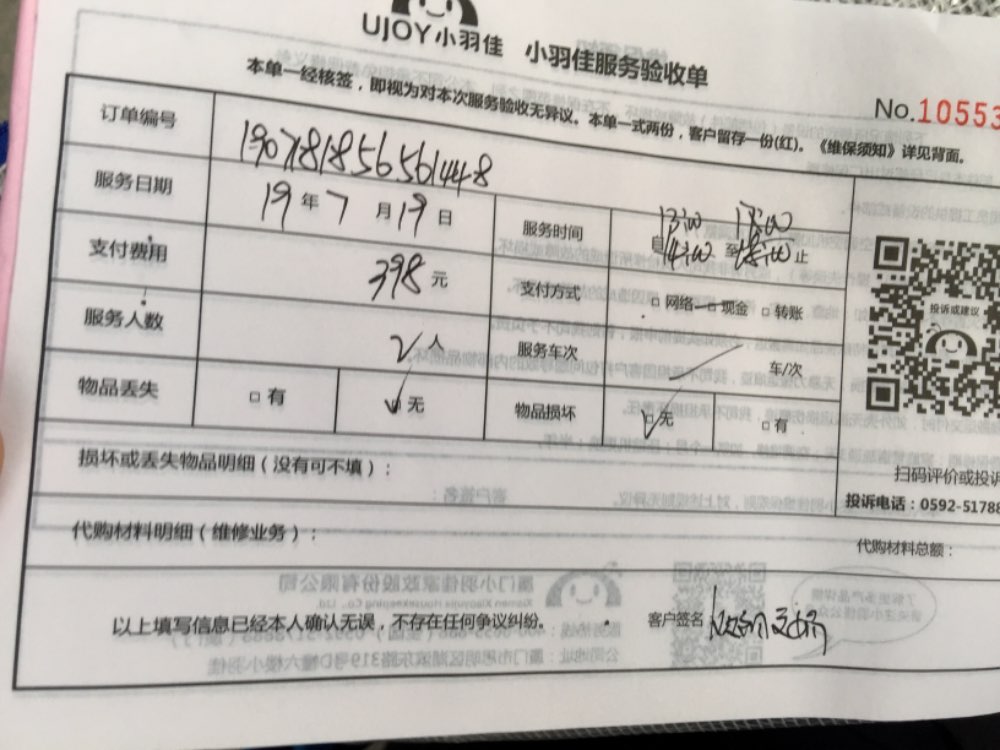 UJOY小羽佳 小羽佳服务验收单
本单一经核签，即视为对本次服务验收无异议。本单一式两份，客户留存一份(红)。《维保须知》详见背面。
No.10553
订单编号
服务日期 19年7月19日
服务时间 自 14:00 至 18:00 止
支付费用 398元
支付方式 □网络 □现金 □转账
服务人数 2人
服务车次 车/次
物品丢失 □有 ☑无
物品损坏 ☑无 □有
投诉或建议
扫码评价或投诉
投诉电话：0592-51788
损坏或丢失物品明细（没有可不填）：
代购材料明细（维修业务）：
代购材料总额：
以上填写信息已经本人确认无误，不存在任何争议纠纷。
客户签名